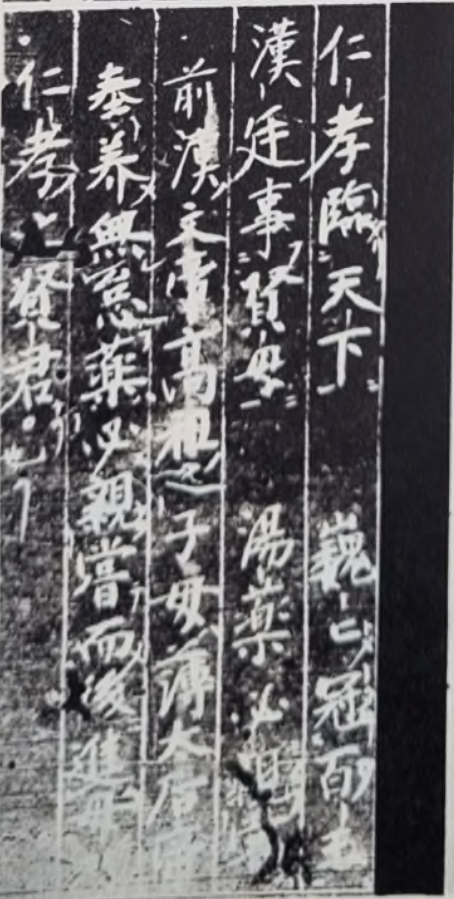 仁孝臨天下 巍々冠百王
漢廷事賢母 湯藥必親
前漢文帝高祖之子母薄太后
奉養無怠藥必親嘗而後進
仁孝之賢君也